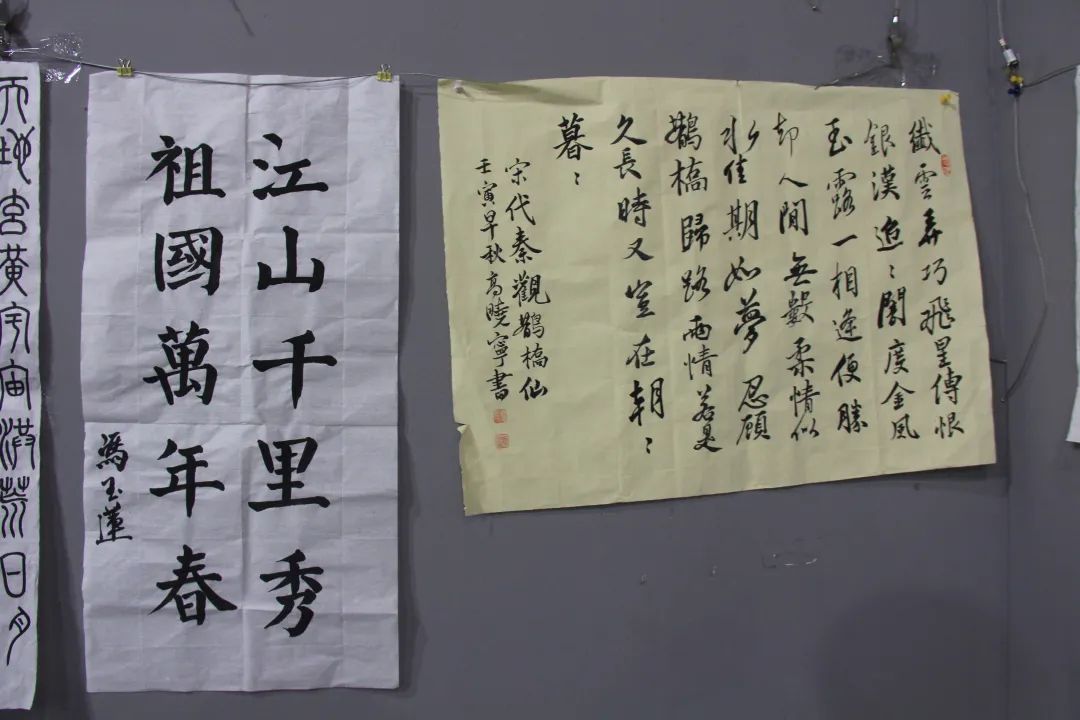 天地玄黃宇宙洪荒日月
江山千里秀
祖國萬年春
馮玉蓮
纖雲弄巧飛星傳恨
銀漢迢〻闇度金風
玉露一相逢便勝
却人間無數柔情似
水佳期如夢忍顧
鵲橋歸路兩情若是
久長時又豈在朝〻
暮〻
宋代秦觀鵲橋仙
壬寅早秋高曉寧書